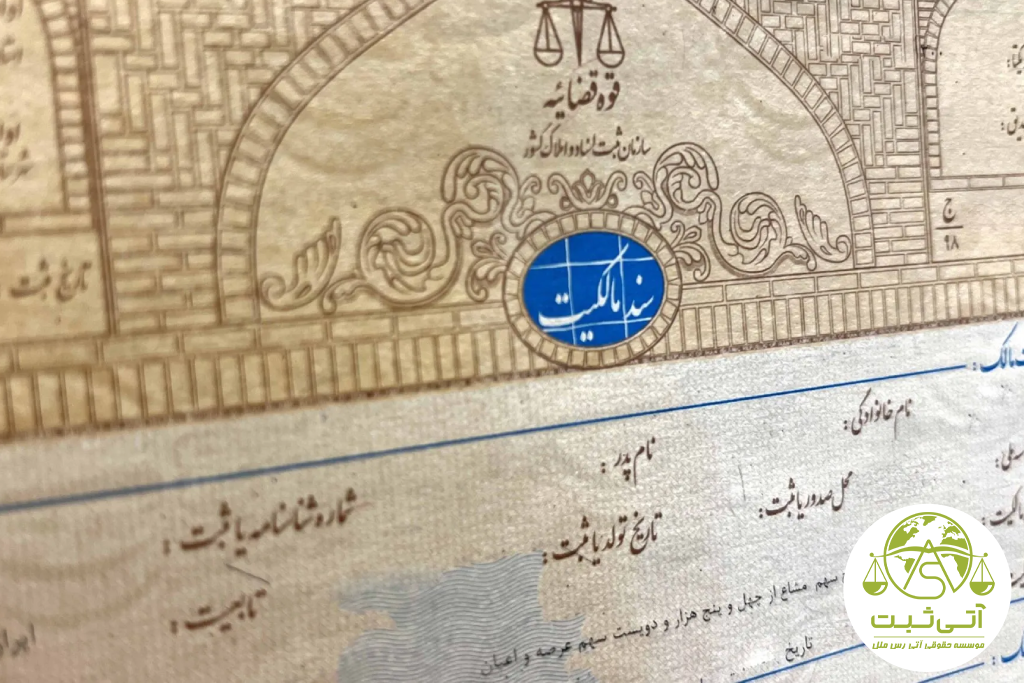 قوه قضائیه
سازمان ثبت اسناد و املاک کشور
ج
۹۸
تاریخ ثبت
سند مالکیت
مالک:
نام خانوادگی:
نام پدر:
شماره شناسنامه یا ثبت:
محل صدور یا ثبت:
تاریخ تولد یا ثبت:
تابعیت:
سهم مشاع از چهل و پنج هزار و دویست سهم عرصه و اعیان
تاریخ
آتی ثبت
موسسه حقوقی آتی رس ملل